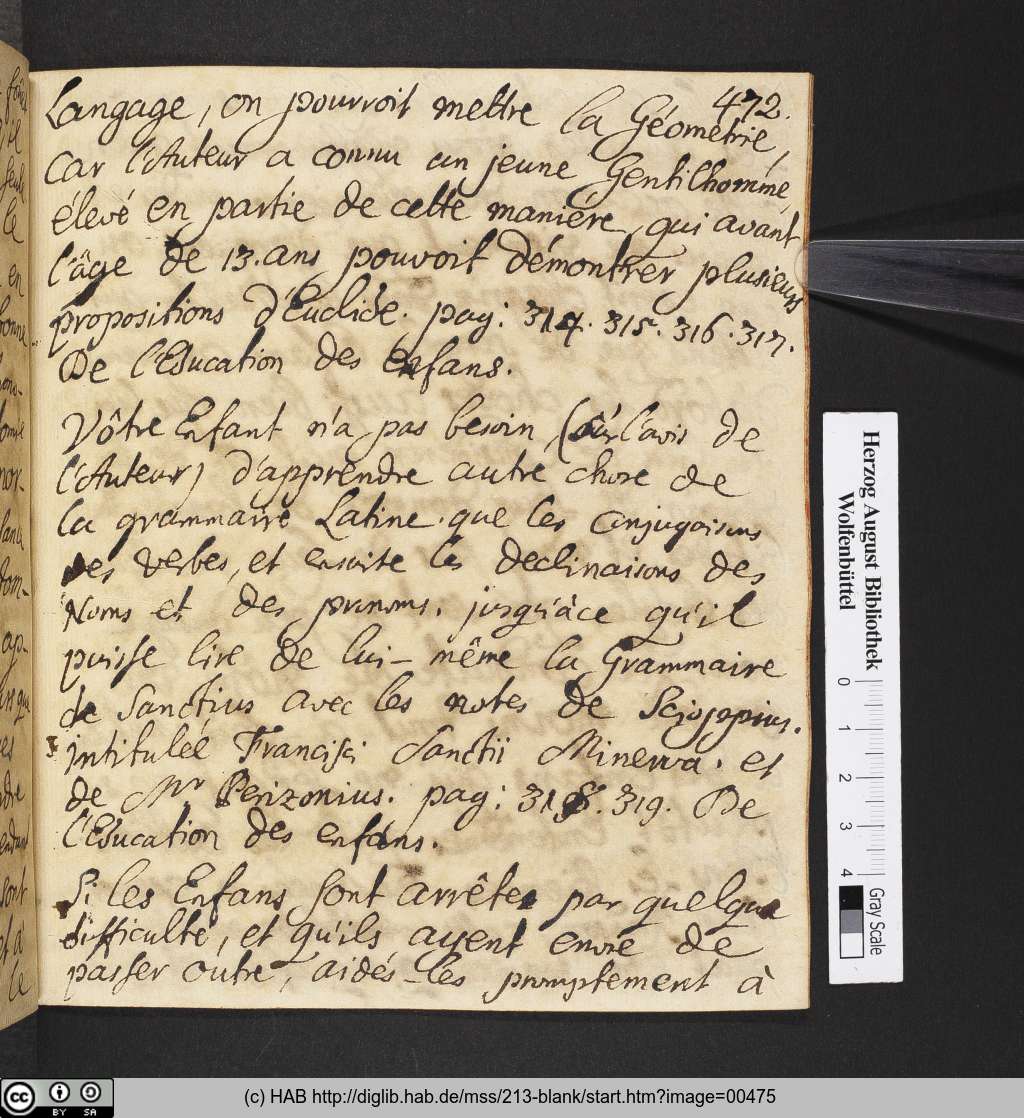 472.
Langage, on pourroit mettre la Géometrie,
car l'Auteur a connu un jeune Gentilhomme,
élevé en partie de cette maniere, qui avant
l'âge de 13. ans pouvoit démontrer plusieurs
propositions d'Euclide. pag: 314. 315. 316. 317.
De l'Education des enfans.
Vôtre Enfant n'a pas besoin (sur l'avis de
l'Auteur) d'apprendre autre chose de
la grammaire Latine. que les Conjugaisons
des verbes, et ensuite les declinaisons des
Noms et des pronoms. jusqu'à ce qu'il
puisse lire de lui-même la Grammaire
de Sanctius avec les notes de Scioppius.
intitulée Francisci Sanctii Minerva. et
de Mr Perizonius. pag: 318. 319. De
l'Education des enfans.
Si les Enfans sont arrêtes par quelque
difficulté, et qu'ils ayent envie de
passer outre, aidés-les promptement à
Herzog August Bibliothek
Wolfenbüttel
0 1 2 3 4
Gray Scale
CC BY SA
(c) HAB http://diglib.hab.de/mss/213-blank/start.htm?image=00475